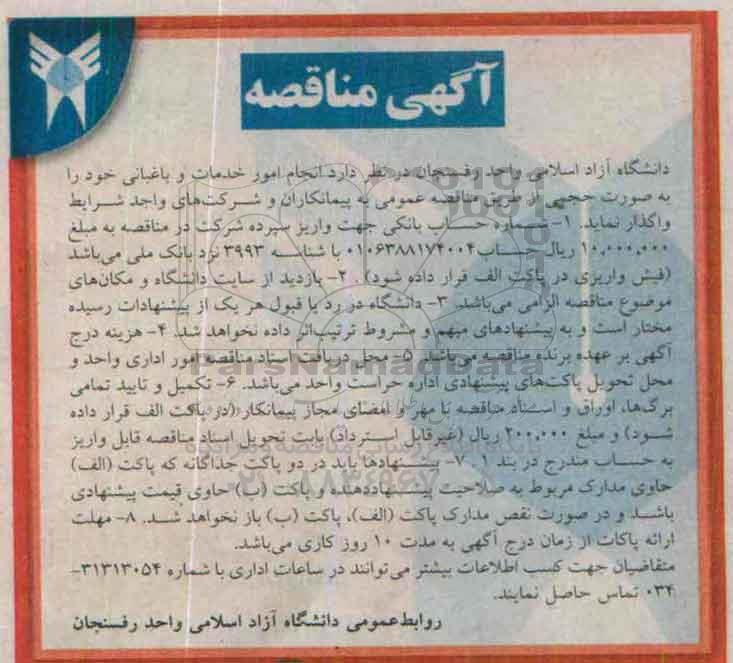 آگهی مناقصه
دانشگاه آزاد اسلامی واحد رفسنجان در نظر دارد انجام امور خدمات و باغبانی خود را
به صورت حجمی از طریق مناقصه عمومی به پیمانکاران و شرکت‌های واجد شرایط
واگذار نماید. ۱- شماره حساب بانکی جهت واریز سپرده شرکت در مناقصه به مبلغ
۱۰,۰۰۰,۰۰۰ ریال حساب ۰۱۰۶۳۸۸۱۷۴۰۰۴ با شناسه ۳۹۹۳ نزد بانک ملی می‌باشد
(فیش واریزی در پاکت الف قرار داده شود). ۲- بازدید از سایت دانشگاه و مکان‌های
موضوع مناقصه الزامی می‌باشد. ۳- دانشگاه در رد یا قبول هر یک از پیشنهادات رسیده
مختار است و به پیشنهادهای مبهم و مشروط ترتیب‌اثر داده نخواهد شد. ۴- هزینه درج
آگهی بر عهده برنده مناقصه می‌باشد. ۵- محل دریافت اسناد مناقصه امور اداری واحد و
محل تحویل پاکت‌های پیشنهادی اداره حراست واحد می‌باشد. ۶- تکمیل و تایید تمامی
برگ‌ها، اوراق و اسناد مناقصه با مهر و امضای مجاز پیمانکار (در پاکت الف قرار داده
شود) و مبلغ ۲۰۰,۰۰۰ ریال (غیرقابل استرداد) بابت تحویل اسناد مناقصه قابل واریز
به حساب مندرج در بند ۱ . ۷- پیشنهادها باید در دو پاکت جداگانه که پاکت (الف)
حاوی مدارک مربوط به صلاحیت پیشنهاددهنده و پاکت (ب) حاوی قیمت پیشنهادی
باشد و در صورت نقص مدارک پاکت (الف)، پاکت (ب) باز نخواهد شد. ۸- مهلت
ارائه پاکات از زمان درج آگهی به مدت ۱۰ روز کاری می‌باشد.
متقاضیان جهت کسب اطلاعات بیشتر می‌توانند در ساعات اداری با شماره ۳۱۳۱۳۰۵۴-
۰۳۴ تماس حاصل نمایند.
روابط‌عمومی دانشگاه آزاد اسلامی واحد رفسنجان
ParsNamadData